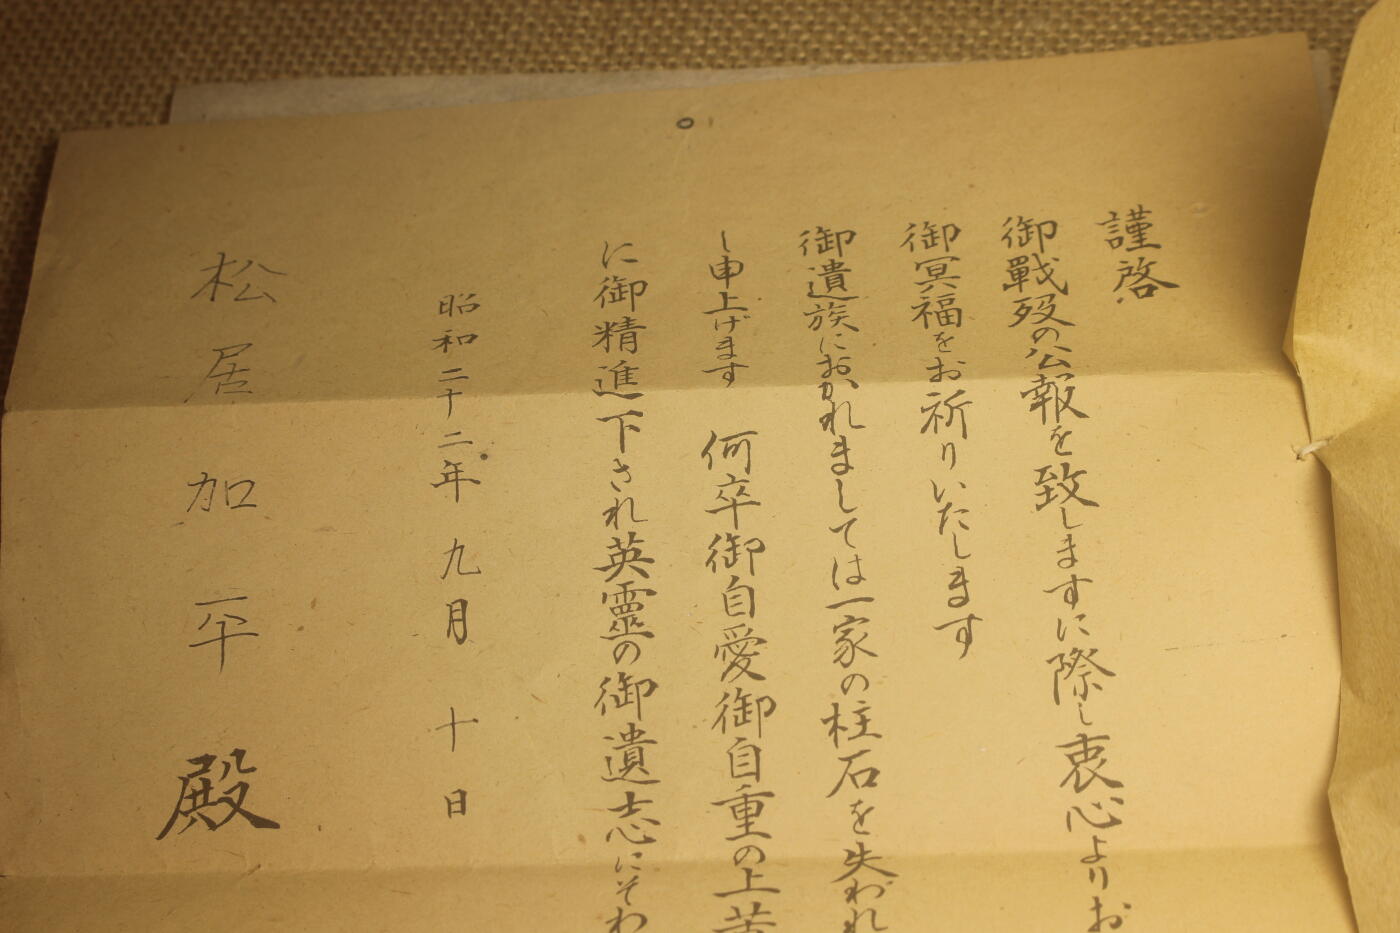 謹啓
御戰歿の公報を致しますに際し衷心よりお
御冥福をお祈りいたします
御遺族におかれましては一家の柱石を失われ
し申上げます 何卒御自愛御自重の上苦
に御精進下され英靈の御遺志にそわ
昭和二十二年 九月 十日
松居加平殿